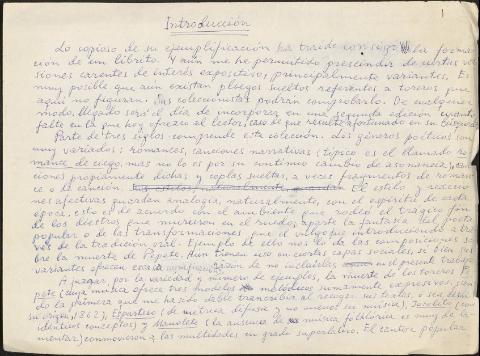 1
Introducción
Lo copioso de su ejemplificación ha traido consigo la forma-
ción de un librito. Y aun me he permitido prescindir de ciertas ver-
siones carentes de interés expositivo, principalmente variantes. Es
muy posible que aun existan pliegos sueltos referentes a toreros que
aquí no figuran. Los coleccionistas podrán comprobarlo. De cualquier
modo, llegado será el día de incorporar en una segunda edición cuanto
falte en la que hoy ofrezco al lector, caso de que resulte afortunado en su búsqueda.
Parte de tres siglos comprende esta colección. Los géneros poéticos son
muy variados: romances, canciones narrativas; típico es el llamado ro-
mance de ciego, mas no lo es por su continuo cambio de asonancia, can-
ciones propiamente dichas y coplas sueltas, a veces fragmentos de roman-
ce o de canción. El estilo y reaccio-
nes afectivas guardan analogía, naturalmente, con el espíritu de cada
época, esto es de acuerdo con el ambiente que rodeó el trágico fin
de los diestros que murieron en el ruedo, aparte la fantasía del poeta
popular o de las transformaciones que el vulgo fue introduciendo a tra-
vés de la tradición oral. Ejemplo de ello nos lo da las composiciones so-
bre la muerte de Pepete. Aun tienen uso en ciertas capas sociales, si bien las
variantes ofrecen escasa significación de no incluirlas en el presente trabajo
A juzgar, por la variedad y número de ejemplos, la muerte de los toreros Pe-
pete (cuya música ofrece tres modelos melódicos sumamente expresivos, sien-
do la primera que me ha sido dable transcribir al recoger sus textos, o sea desde
su origen, 1862), Espartero (de métrica difusa y no menos su música), Joselito (con
idénticos conceptos) y Manolete (la ausencia de música folklórica es muy de la-
mentar) conmovieron a las multitudes en grado superlativo. El cantor popular